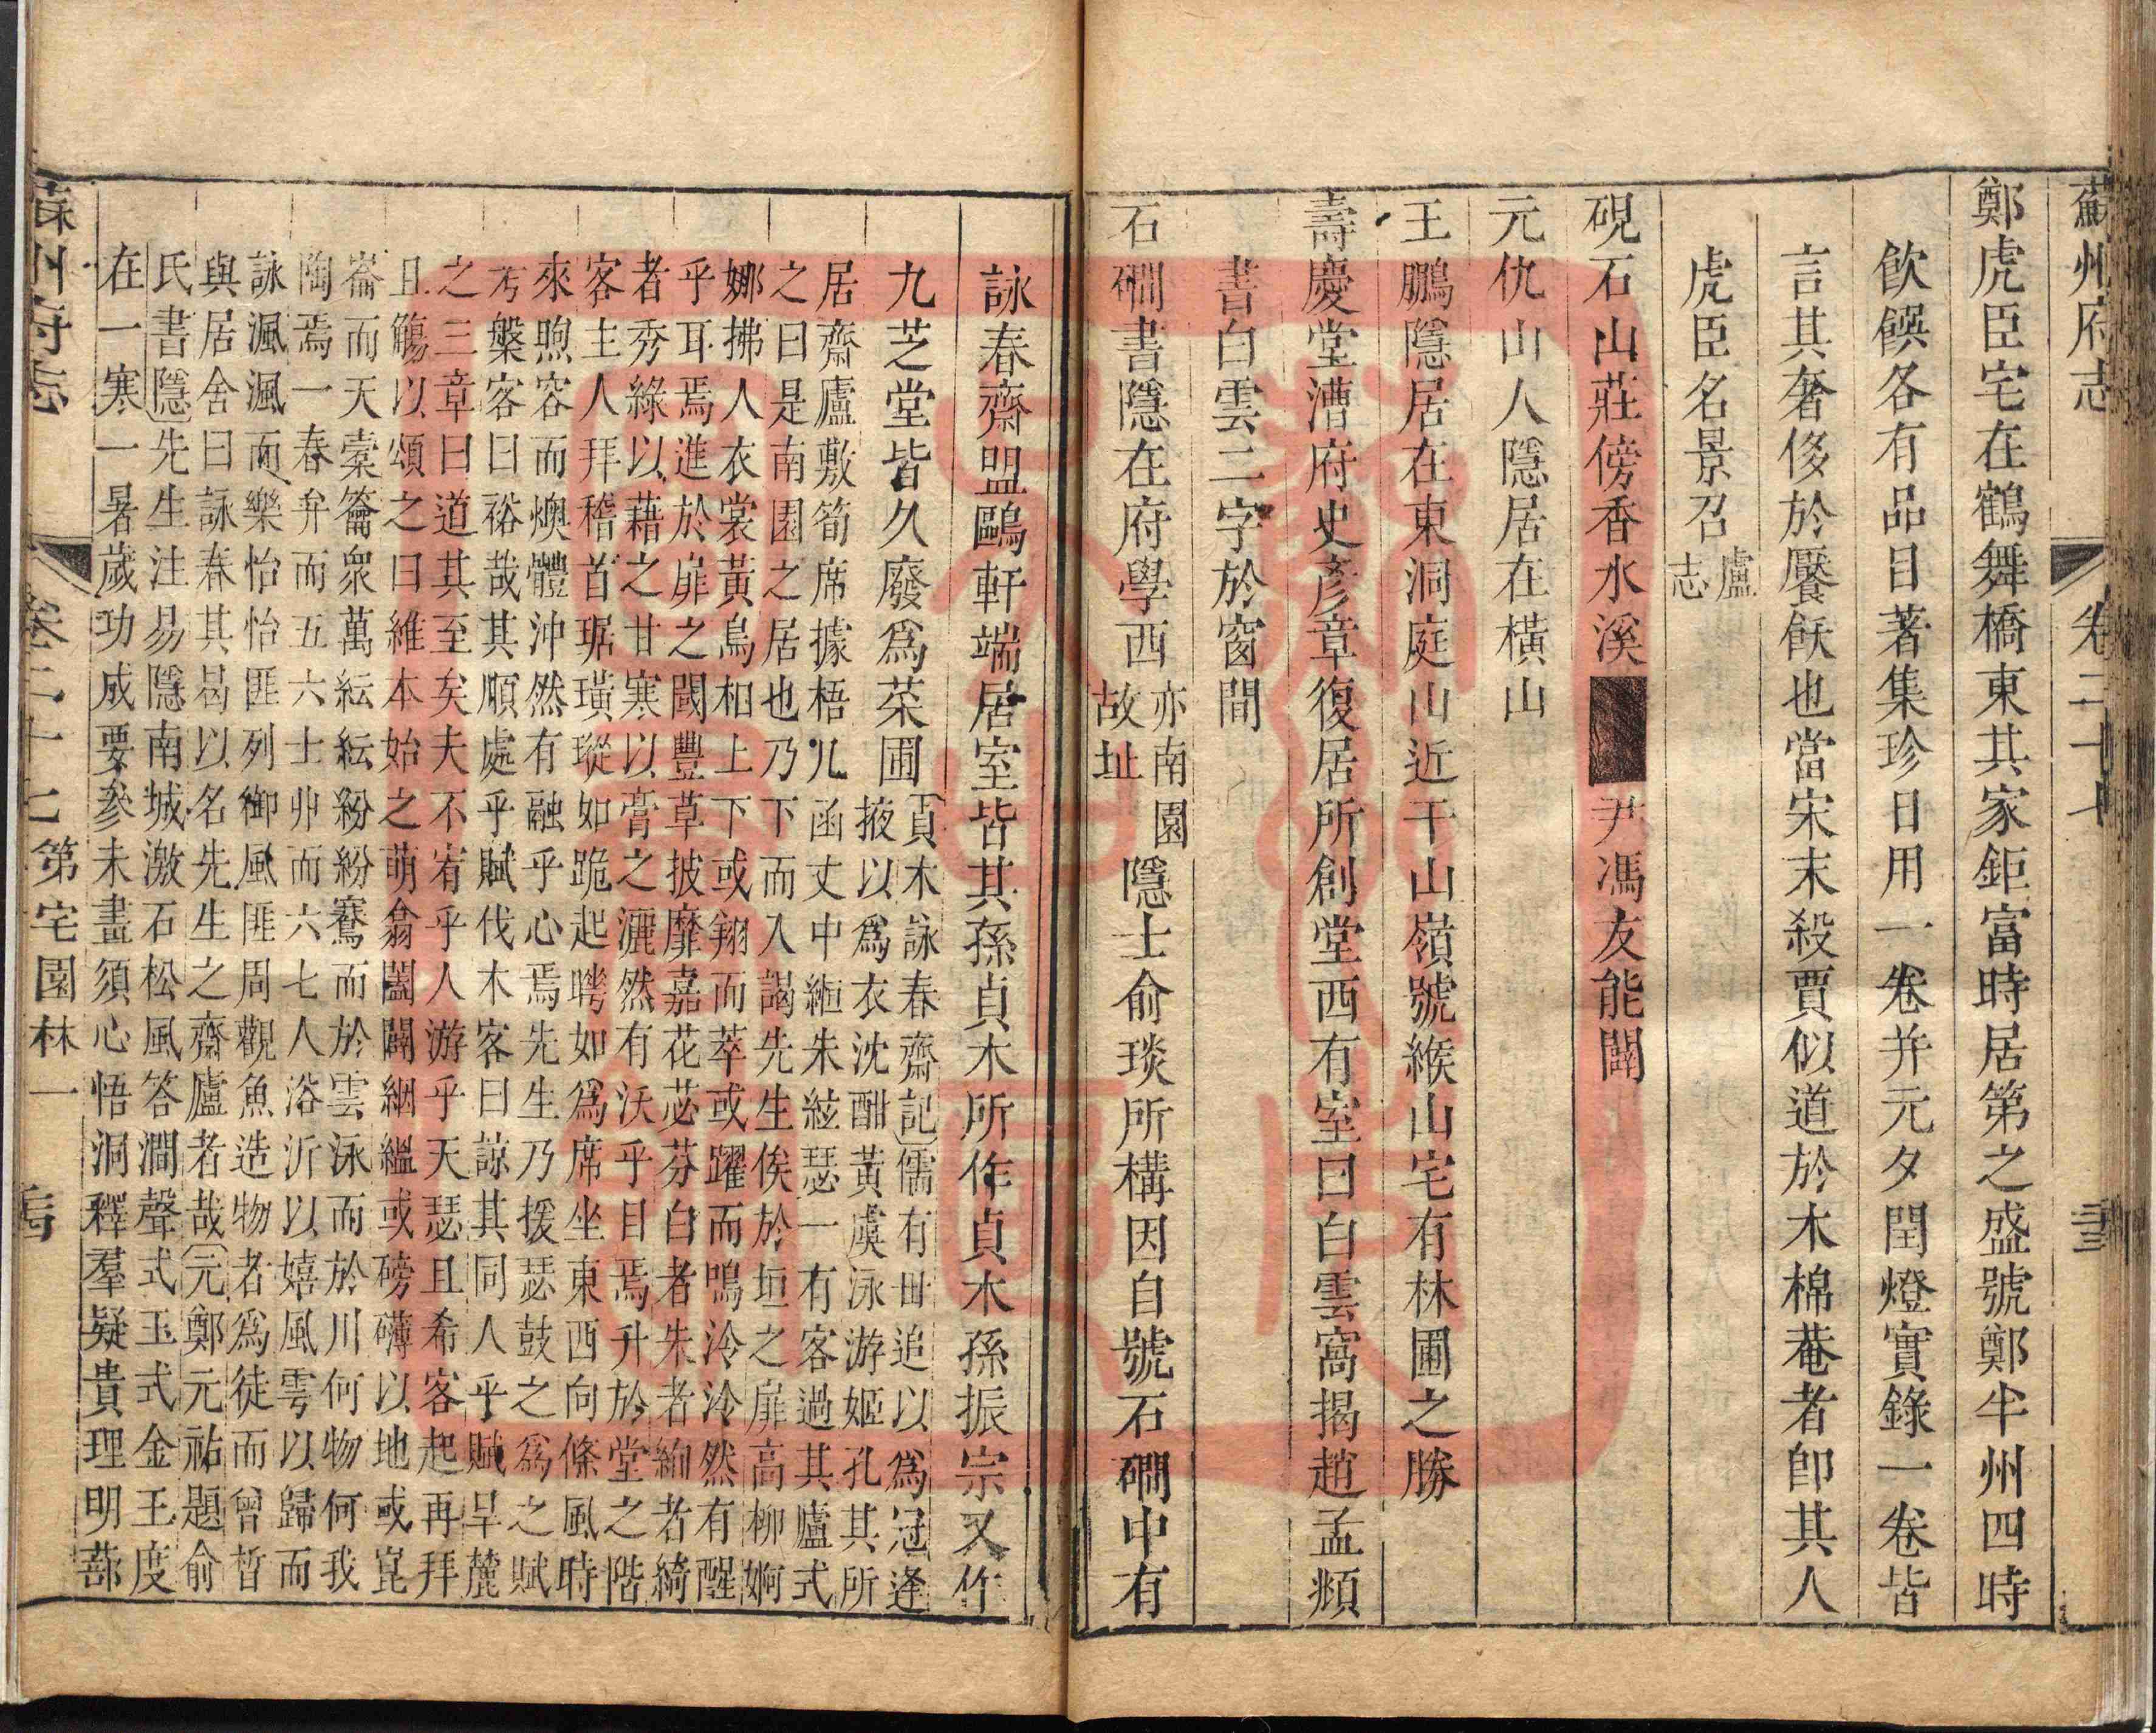 蘇州府志 卷二十七
鄭虎臣宅在鶴舞橋東其家鉅富時居第之盛號鄭半州四時
飲饌各有品目著集珍日用一卷并元夕閏燈實錄一卷皆
言其奢侈於饜飫也當宋末殺賈似道於木棉菴者卽其人
虎臣名景召
盧
志
硯石山莊傍香水溪
尹馮友能闢
元仇山人隱居在橫山
王鵬隱居在東洞庭山近干山嶺號緱山宅有林圃之勝
壽慶堂漕府史彥章復居所創堂西有室曰白雲窩揭趙孟頫
書白雲二字於窗間
石磵書隱在府學西
亦南園
故址
隱士俞琰所構因自號石磵中有
詠春齋盟鷗軒端居室皆其孫貞木所作貞木孫振宗又作
九芝堂皆久廢爲菜圃
貞木詠春齋記儒有毌追以爲冠逢
掖以爲衣沈酣黃虞泳游姬孔其所
居齋廬敷筍席據梧几函丈中緪朱絃瑟一有客過其廬式
之曰是南園之居也乃下而入謁先生俟於垣之扉高柳婀
娜拂人衣裳黃鳥相上下或翔而萃或躍而鳴泠泠然有醒
乎耳焉進於扉之闑豐草披靡嘉花苾芬白者朱者緗者綺
者秀綠以藉之甘寒以膏之灑然有沃乎目焉升於堂之階
客主人拜稽首琚璜瑽如跪起聘如爲席坐東西向條風時
來煦容而燠體沖然有融乎心焉先生乃援瑟鼓之爲之賦
考槃客曰裕哉其順處乎賦伐木客曰諒其同人乎賦旱麓
之三章曰道其至矣夫不宥乎人游乎天瑟且希客起再拜
且觴以頌之曰維本始之萌翕闔闢絪縕或磅礴以地或崑
崙而天橐籥衆萬紜紜紛紛騫而於雲泳而於川何物何我
陶焉一春弁而五六士丱而六七人浴沂以嬉風雩以歸而
詠渢渢而樂怡怡匪列御風匪周觀魚造物者爲徒而曾晳
與居舍曰詠春其曷以名先生之齋廬者哉元鄭元祐題俞
氏書隱先生注易隱南城激石松風答澗聲式玉式金王度
在一寒一暑歲功成要參未畫須心悟洞釋羣疑貴理明蔀
蘇州府志 卷二十七第宅園林一